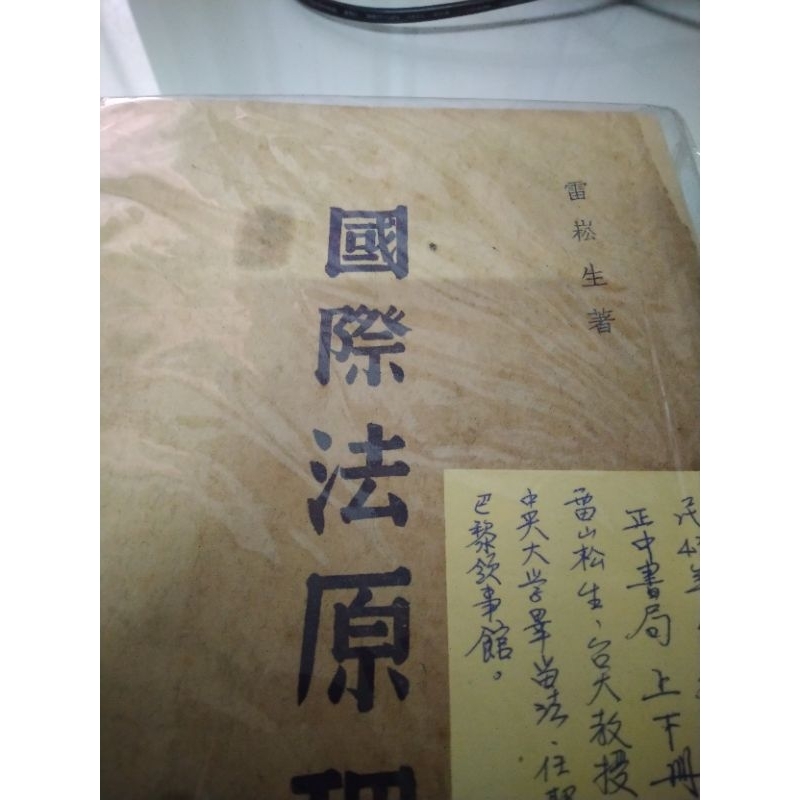 雷崧生著
國際法原理
正中書局 上下冊
雷崧生、台大教授
中央大学畢留法、任
巴黎領事館。